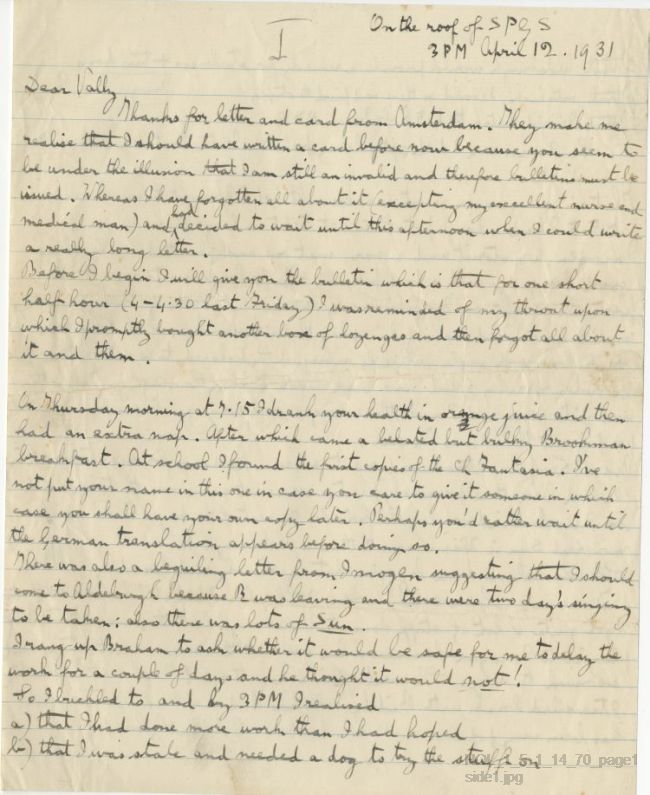 I
On the roof of SPGS
3PM April 12. 1931
Dear Vally
Thanks for letter and card from Amsterdam. They make me
realise that I should have written a card before now because you seem to
be under the illusion that I am still an invalid and therefore bulletins must be
issued. Whereas I have forgotten all about it (excepting my excellent nurse and
medical man) and had decided to wait until this afternoon when I could write
a really long letter.
Before I begin I will give you the bulletin which is that for one short
half hour (4-4.30 last Friday) I was reminded of my throat upon
which I promptly bought another box of lozenges and then forgot all about
it and them.
On Thursday morning at 7.15 I drank your health in orange juice and then
had an extra nap. After which came a belated but bulky Brookman
breakfast. At school I found the first copies of the Ch Fantasia. I've
not put your name in this one in case you care to give it someone in which
case you shall have your own copy later. Perhaps you'd rather wait until
the German translation appears before doing so.
There was also a beguiling letter from Imogen suggesting that I should
come to Aldeburgh because was leaving and there were two day's singing
to be taken: also there was lots of Sun.
I rang up Braham to ask whether it would be safe for me to delay the
work for a couple of days and he thought it would not!
So I buckled to and by 3PM I realised
a) that I had done more work than I had hoped
b) that I was stale and needed a dog to try the stuff on
5_1_14_70_page1
side1.jpg